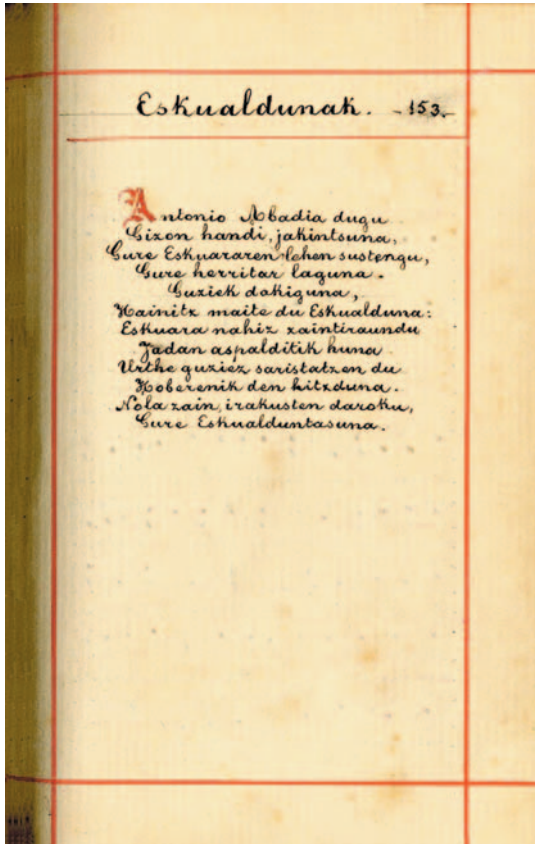 Eskualdunak. - 153. -
Antonio Abadia dugu
Gizon handi, jakintsuna,
Gure Eskuararen lehen sustengu,
Gure herritar laguna.
Guziek dakiguna,
Hainitz maite du Eskualduna:
Eskuara nahiz zaintiraundu
Jadan aspalditik huna
Urthe guziez saristatzen du
Hoberenik den hitzduna.
Nola zain, irakusten daroku,
Gure Eskualduntasuna.